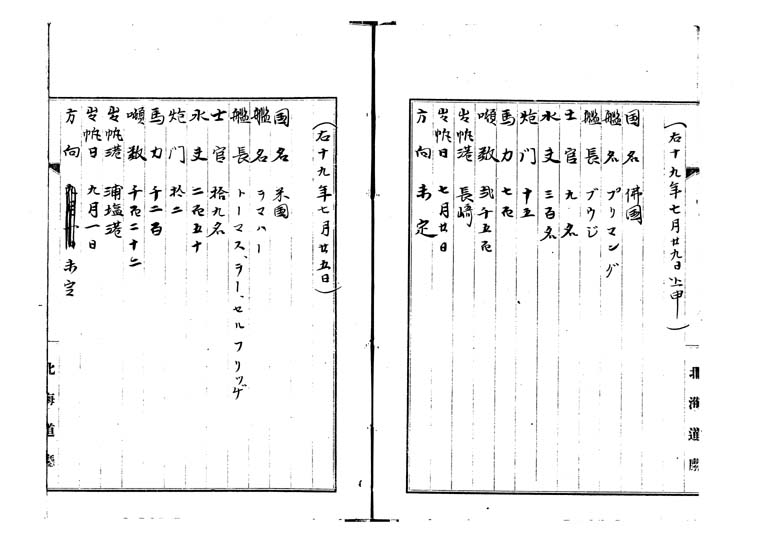 (右十九年七月廿九日上申)
国名 佛國
艦名 プリマング
艦長 ブウジ
士官 九名
水夫 三百名
炮門 十五
馬力 七百
噸数 弐千五百
発帆港 長崎
発帆日 七月廿日
方向 未定
北海道廳
(右十九年七月廿五日)
国名 米國
艦名 ヲマハー
艦長 トーマス、ヲー、セルフリッヂ
士官 拾九名
水夫 二百五十
炮門 拾二
馬力 千二百
噸数 千百二十二
発帆港 浦塩港
発帆日 九月一日
方向 未定
北海道廳